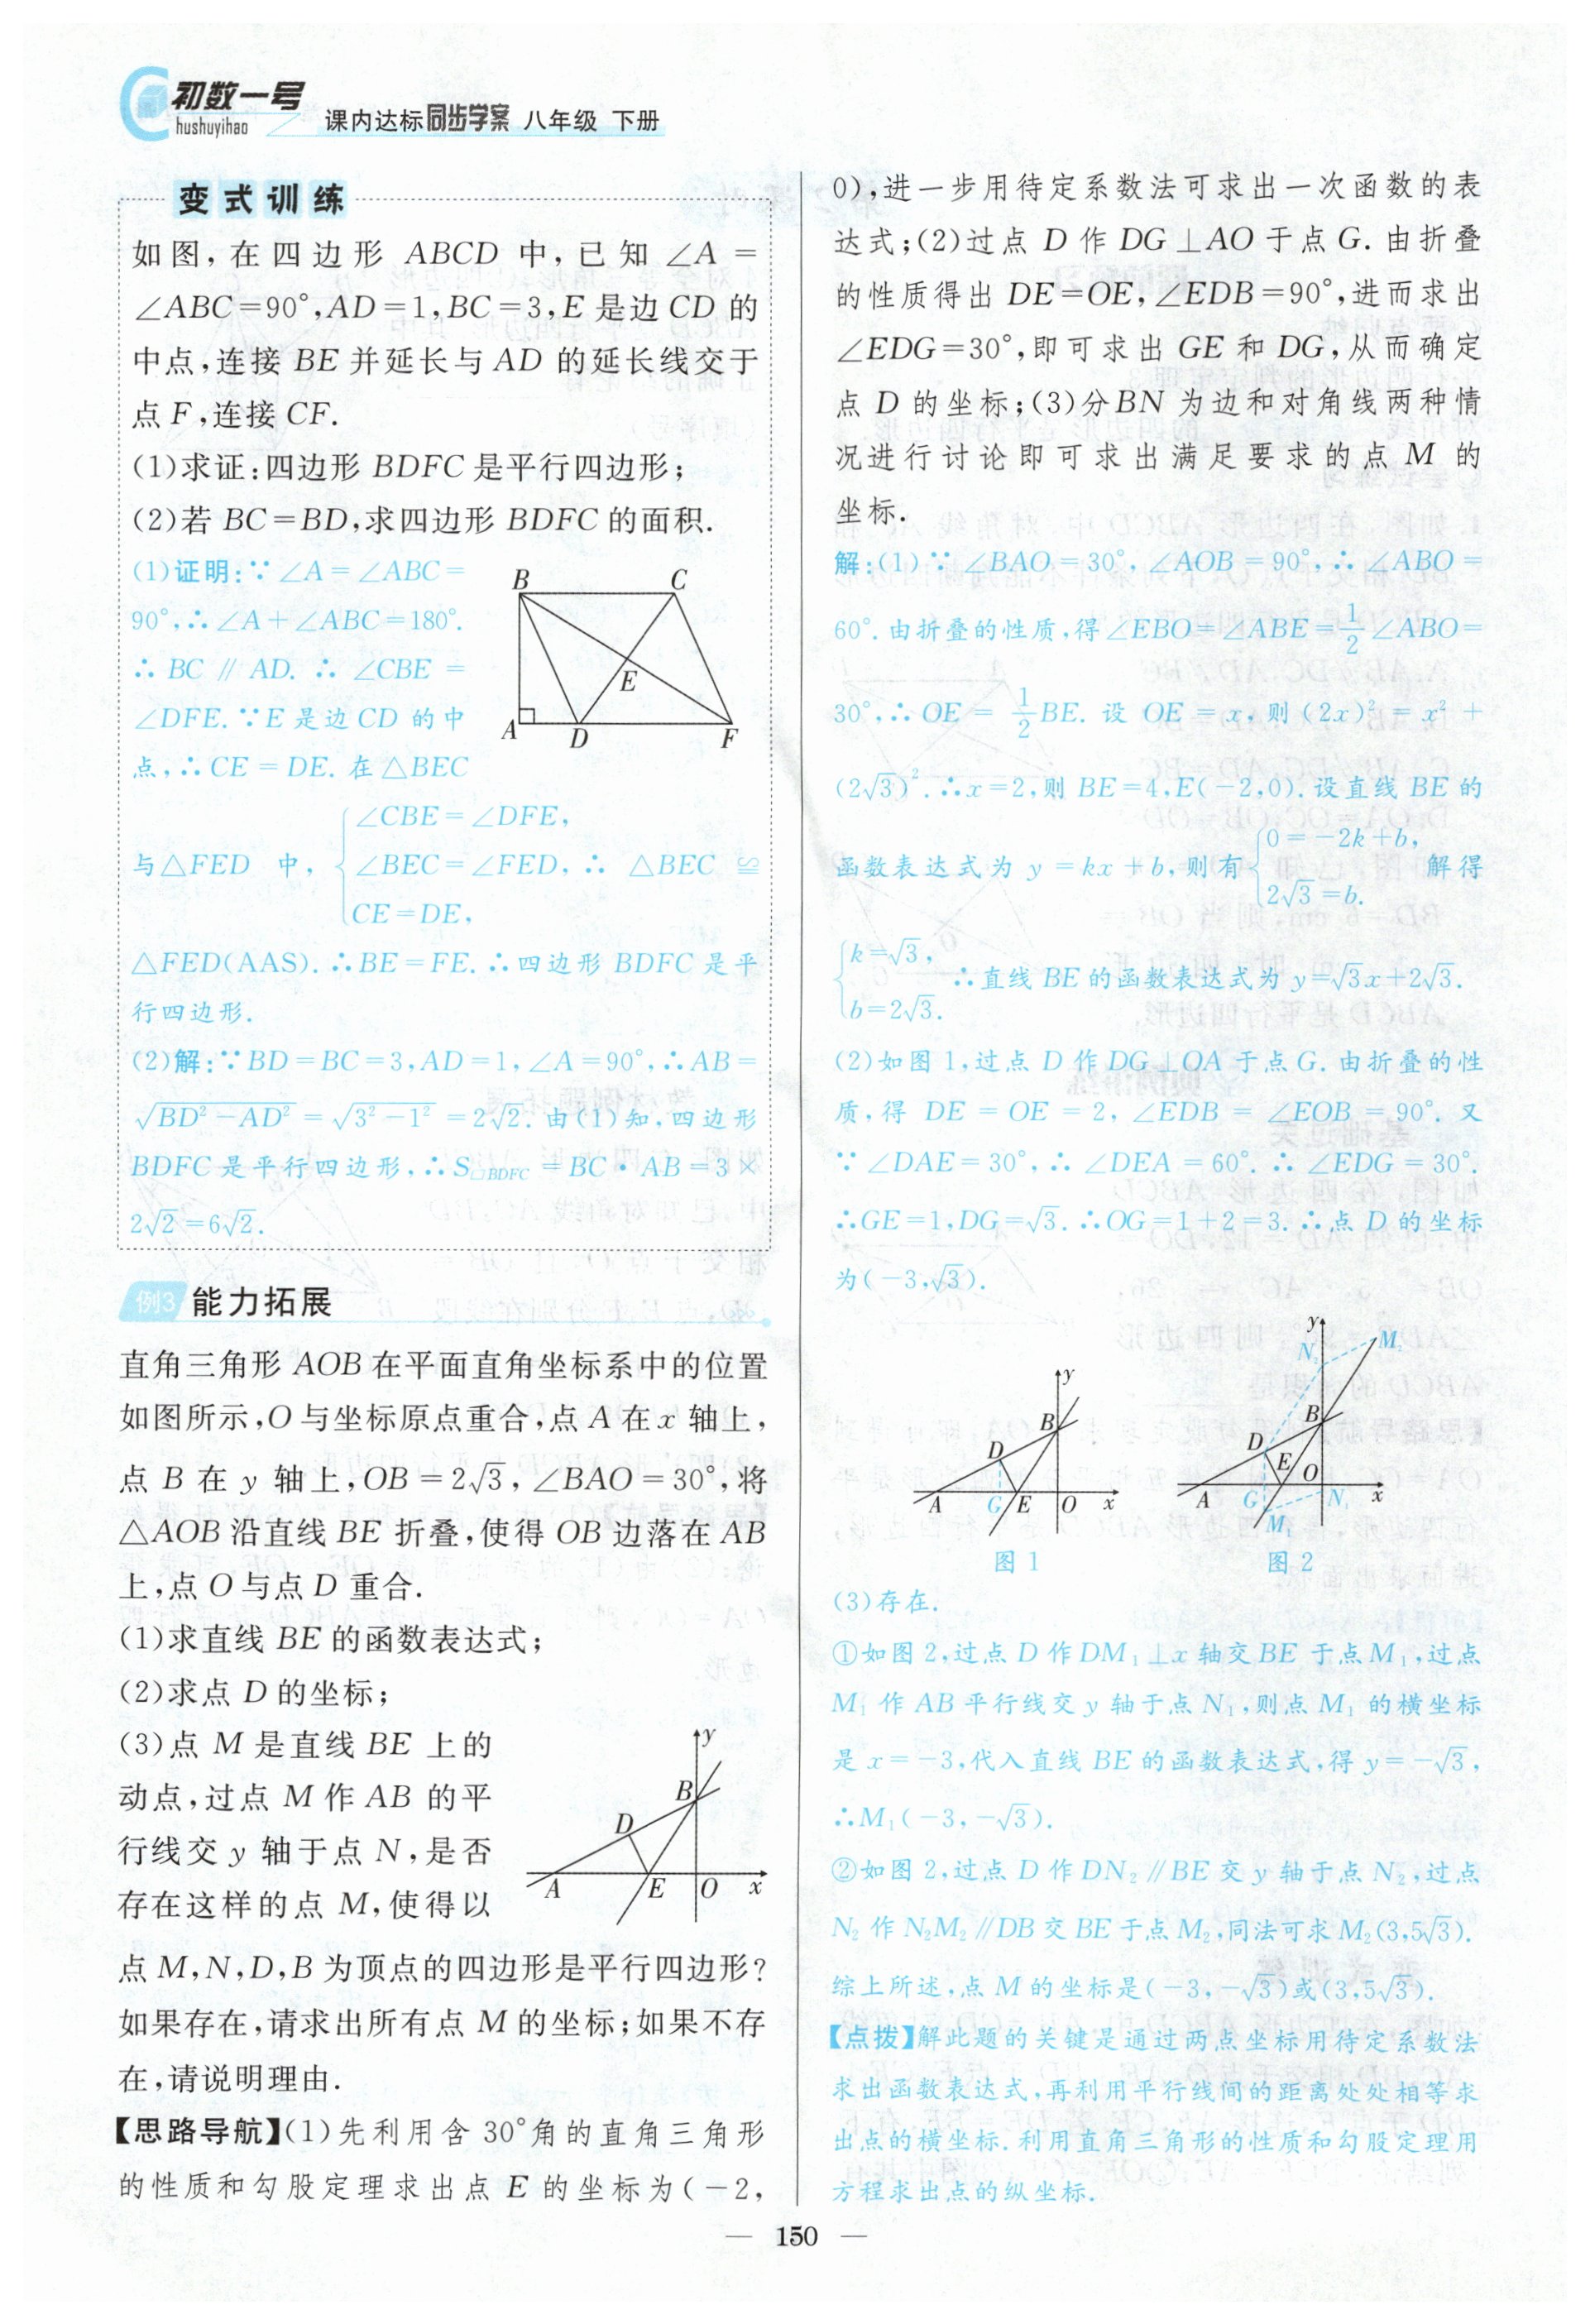 初数一号
hushuyihao
课内达标同步学案 八年级 下册
变式训练
如图,在四边形 ABCD 中,已知 ∠A =
∠ABC=90°,AD=1,BC=3,E 是边 CD 的
中点,连接 BE 并延长与 AD 的延长线交于
点 F,连接 CF.
(1)求证:四边形 BDFC 是平行四边形;
(2)若 BC=BD,求四边形 BDFC 的面积.
(1)证明:∵∠A=∠ABC=
90°,∴∠A+∠ABC=180°.
∴ BC // AD. ∴ ∠CBE =
∠DFE. ∵E 是边 CD 的中
点,∴CE=DE. 在△BEC
与△FED 中, {∠CBE=∠DFE, ∠BEC=∠FED, CE=DE, ∴ △BEC ≌
△FED(AAS). ∴BE=FE. ∴四边形 BDFC 是平
行四边形.
B C E A D F
(2)解:∵BD=BC=3,AD=1,∠A=90°,∴AB=
√(BD²-AD²) = √(3²-1²) = 2√2. 由(1)知,四边形
BDFC 是平行四边形,∴S▱BDFC = BC·AB=3×
2√2=6√2.
例3 能力拓展
直角三角形 AOB 在平面直角坐标系中的位置
如图所示,O 与坐标原点重合,点 A 在 x 轴上,
点 B 在 y 轴上,OB=2√3,∠BAO=30°,将
△AOB 沿直线 BE 折叠,使得 OB 边落在 AB
上,点 O 与点 D 重合.
(1)求直线 BE 的函数表达式;
(2)求点 D 的坐标;
(3)点 M 是直线 BE 上的
动点,过点 M 作 AB 的平
行线交 y 轴于点 N,是否
存在这样的点 M,使得以
点 M,N,D,B 为顶点的四边形是平行四边形?
如果存在,请求出所有点 M 的坐标;如果不存
在,请说明理由.
y B D A E O x
【思路导航】(1)先利用含 30°角的直角三角形
的性质和勾股定理求出点 E 的坐标为(-2,
0),进一步用待定系数法可求出一次函数的表
达式;(2)过点 D 作 DG⊥AO 于点 G. 由折叠
的性质得出 DE=OE,∠EDB=90°,进而求出
∠EDG=30°,即可求出 GE 和 DG,从而确定
点 D 的坐标;(3)分BN 为边和对角线两种情
况进行讨论即可求出满足要求的点 M 的
坐标.
解:(1)∵ ∠BAO=30°,∠AOB=90°,∴ ∠ABO=
60°. 由折叠的性质,得∠EBO=∠ABE=1/2∠ABO=
30°,∴ OE = 1/2BE. 设 OE = x, 则 (2x)² = x² +
(2√3)². ∴x=2,则 BE=4,E(-2,0). 设直线 BE 的
函数表达式为 y=kx+b,则有{0=-2k+b, 2√3=b. 解得
{k=√3, b=2√3. ∴直线 BE 的函数表达式为 y=√3x+2√3.
(2)如图 1,过点 D 作 DG⊥OA 于点 G. 由折叠的性
质,得 DE = OE = 2, ∠EDB = ∠EOB = 90°. 又
∵ ∠DAE=30°,∴ ∠DEA = 60°. ∴ ∠EDG=30°.
∴GE=1,DG=√3. ∴OG=1+2=3. ∴点 D 的坐标
为(-3,√3).
y B D A G E O x
图 1
y N₂ M₂ B D E O A G N₁ x M₁
图 2
(3)存在.
①如图 2,过点 D 作 DM₁⊥x 轴交 BE 于点 M₁,过点
M₁ 作 AB 平行线交 y 轴于点 N₁,则点 M₁ 的横坐标
是 x=-3,代入直线 BE 的函数表达式,得 y=-√3,
∴M₁(-3,-√3).
②如图 2,过点 D 作 DN₂//BE 交 y 轴于点 N₂,过点
N₂ 作 N₂M₂//DB 交 BE 于点 M₂,同法可求 M₂(3,5√3).
综上所述,点 M 的坐标是(-3,-√3)或(3,5√3).
【点拨】解此题的关键是通过两点坐标用待定系数法
求出函数表达式,再利用平行线间的距离处处相等求
出点的横坐标. 利用直角三角形的性质和勾股定理用
方程求出点的纵坐标.
— 150 —